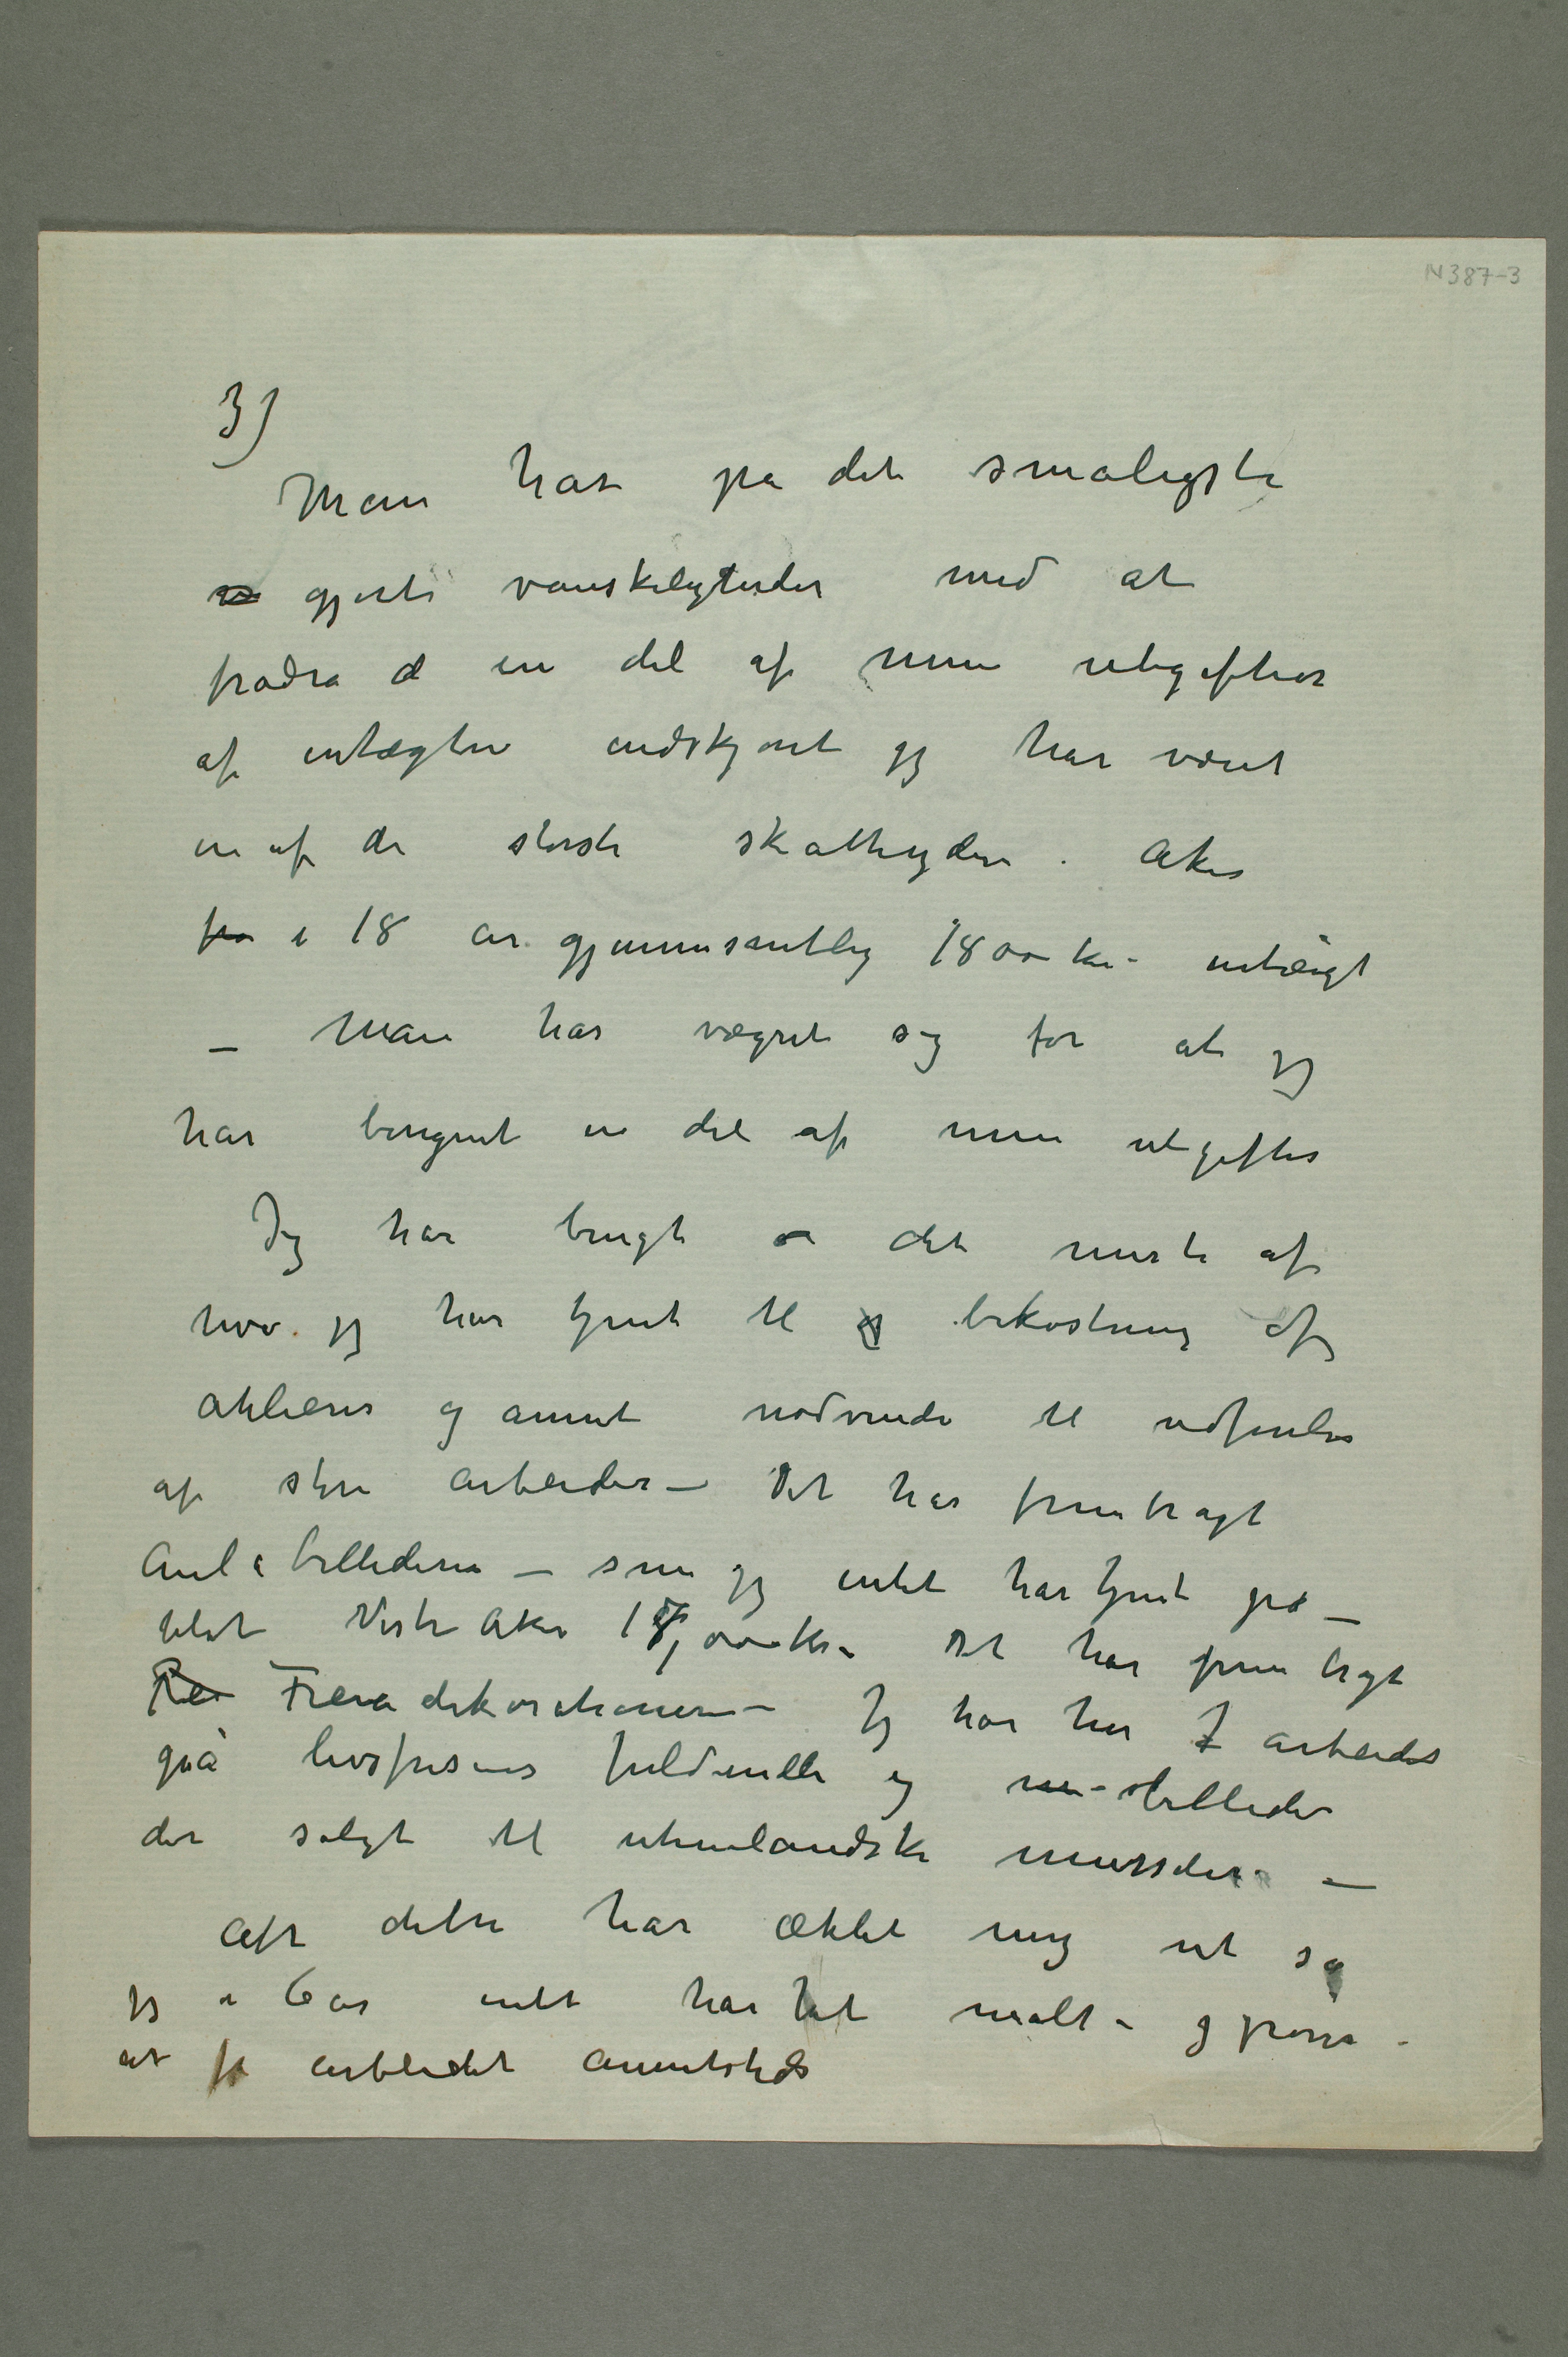 N 387-3
3)
Man har på det småligste
gjort vanskeligheder med at
fradra en del af mine utgifter
af intægter endskjønt jeg har været
en af de største skatteydere. Aker
fra i 18 år gjennemsnitlig 1800 kr. – intægt
– Man har vægret sig for at jeg
har beregnet en del af mine utgifter
Jeg har brugt det meste af
hva jeg har tjent til bekostning af
atelierer og annet nødvendi til udførelse
af større arbeider – Det har frembragt
Aulabillederne – som jeg intet har tjent på –
blot Vestre Aker 17,000 kr. – Det har frembragt
Re Freiadekorationerne – Jeg har her arbeidet
på livsfrisens fuldendelse og billeder
der solgt til utenlandske museer –
Alt dette har æklet mig ut så
jeg i 6 år intet har malt – og prøver
at få arbeidet annetsteds